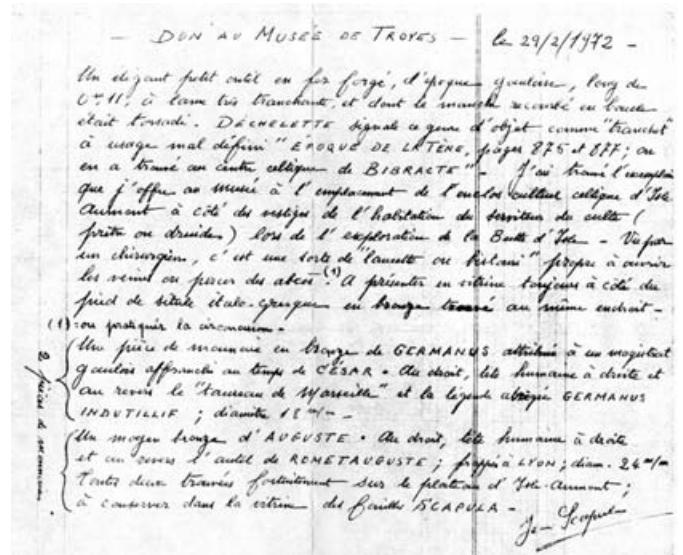 — DON AU MUSÉE DE TROYES — le 29/2/1972 —
Un élégant petit outil en fer forgé, d'époque gauloise, long de
0m11, à lame très tranchante, et dont le manche recourbé en boucle
était torsadé. DÉCHELETTE signale ce genre d'objet comme "tranchet"
à usage mal défini "EPOQUE DE LA TÈNE, pages 875 et 877; on
en a trouvé au centre celtique de BIBRACTE" - J'ai trouvé l'exemplaire
que j'offre au musée à l'emplacement de l'enclos cultuel celtique d'Isle
Aumont à côté des vestiges de l'habitation du serviteur du culte (
prêtre ou druides) lors de l'exploration de la Butte d'Isle - Vu par
un chirurgien, c'est une sorte de "lancette ou bistouri" propre à ouvrir
les veines ou percer des abcès (1). A présenter en vitrine toujours à côté du
pied de situle italo-grecque en bronze trouvé au même endroit -
(1) - ou pratiquer la circoncision.
Une pièce de monnaie en bronze de GERMANUS attribuée à un magistrat
gaulois affranchi au temps de CÉSAR. Au droit, tête humaine à droite et
au revers le "taureau de Marseille" et la légende GERMANUS
INDUTILLIF ; diamètre 18 m/m -
Un moyen bronze d'AUGUSTE. Au droit, tête humaine à droite
et au revers l'autel de ROMETAUGUSTE ; frappé à LYON ; diam. 24 m/m
Toutes deux trouvées fortuitement sur le plateau d'Isle-Aumont ;
à conserver dans la vitrine des fouilles SCAPULA -
2 pièces de monnaie